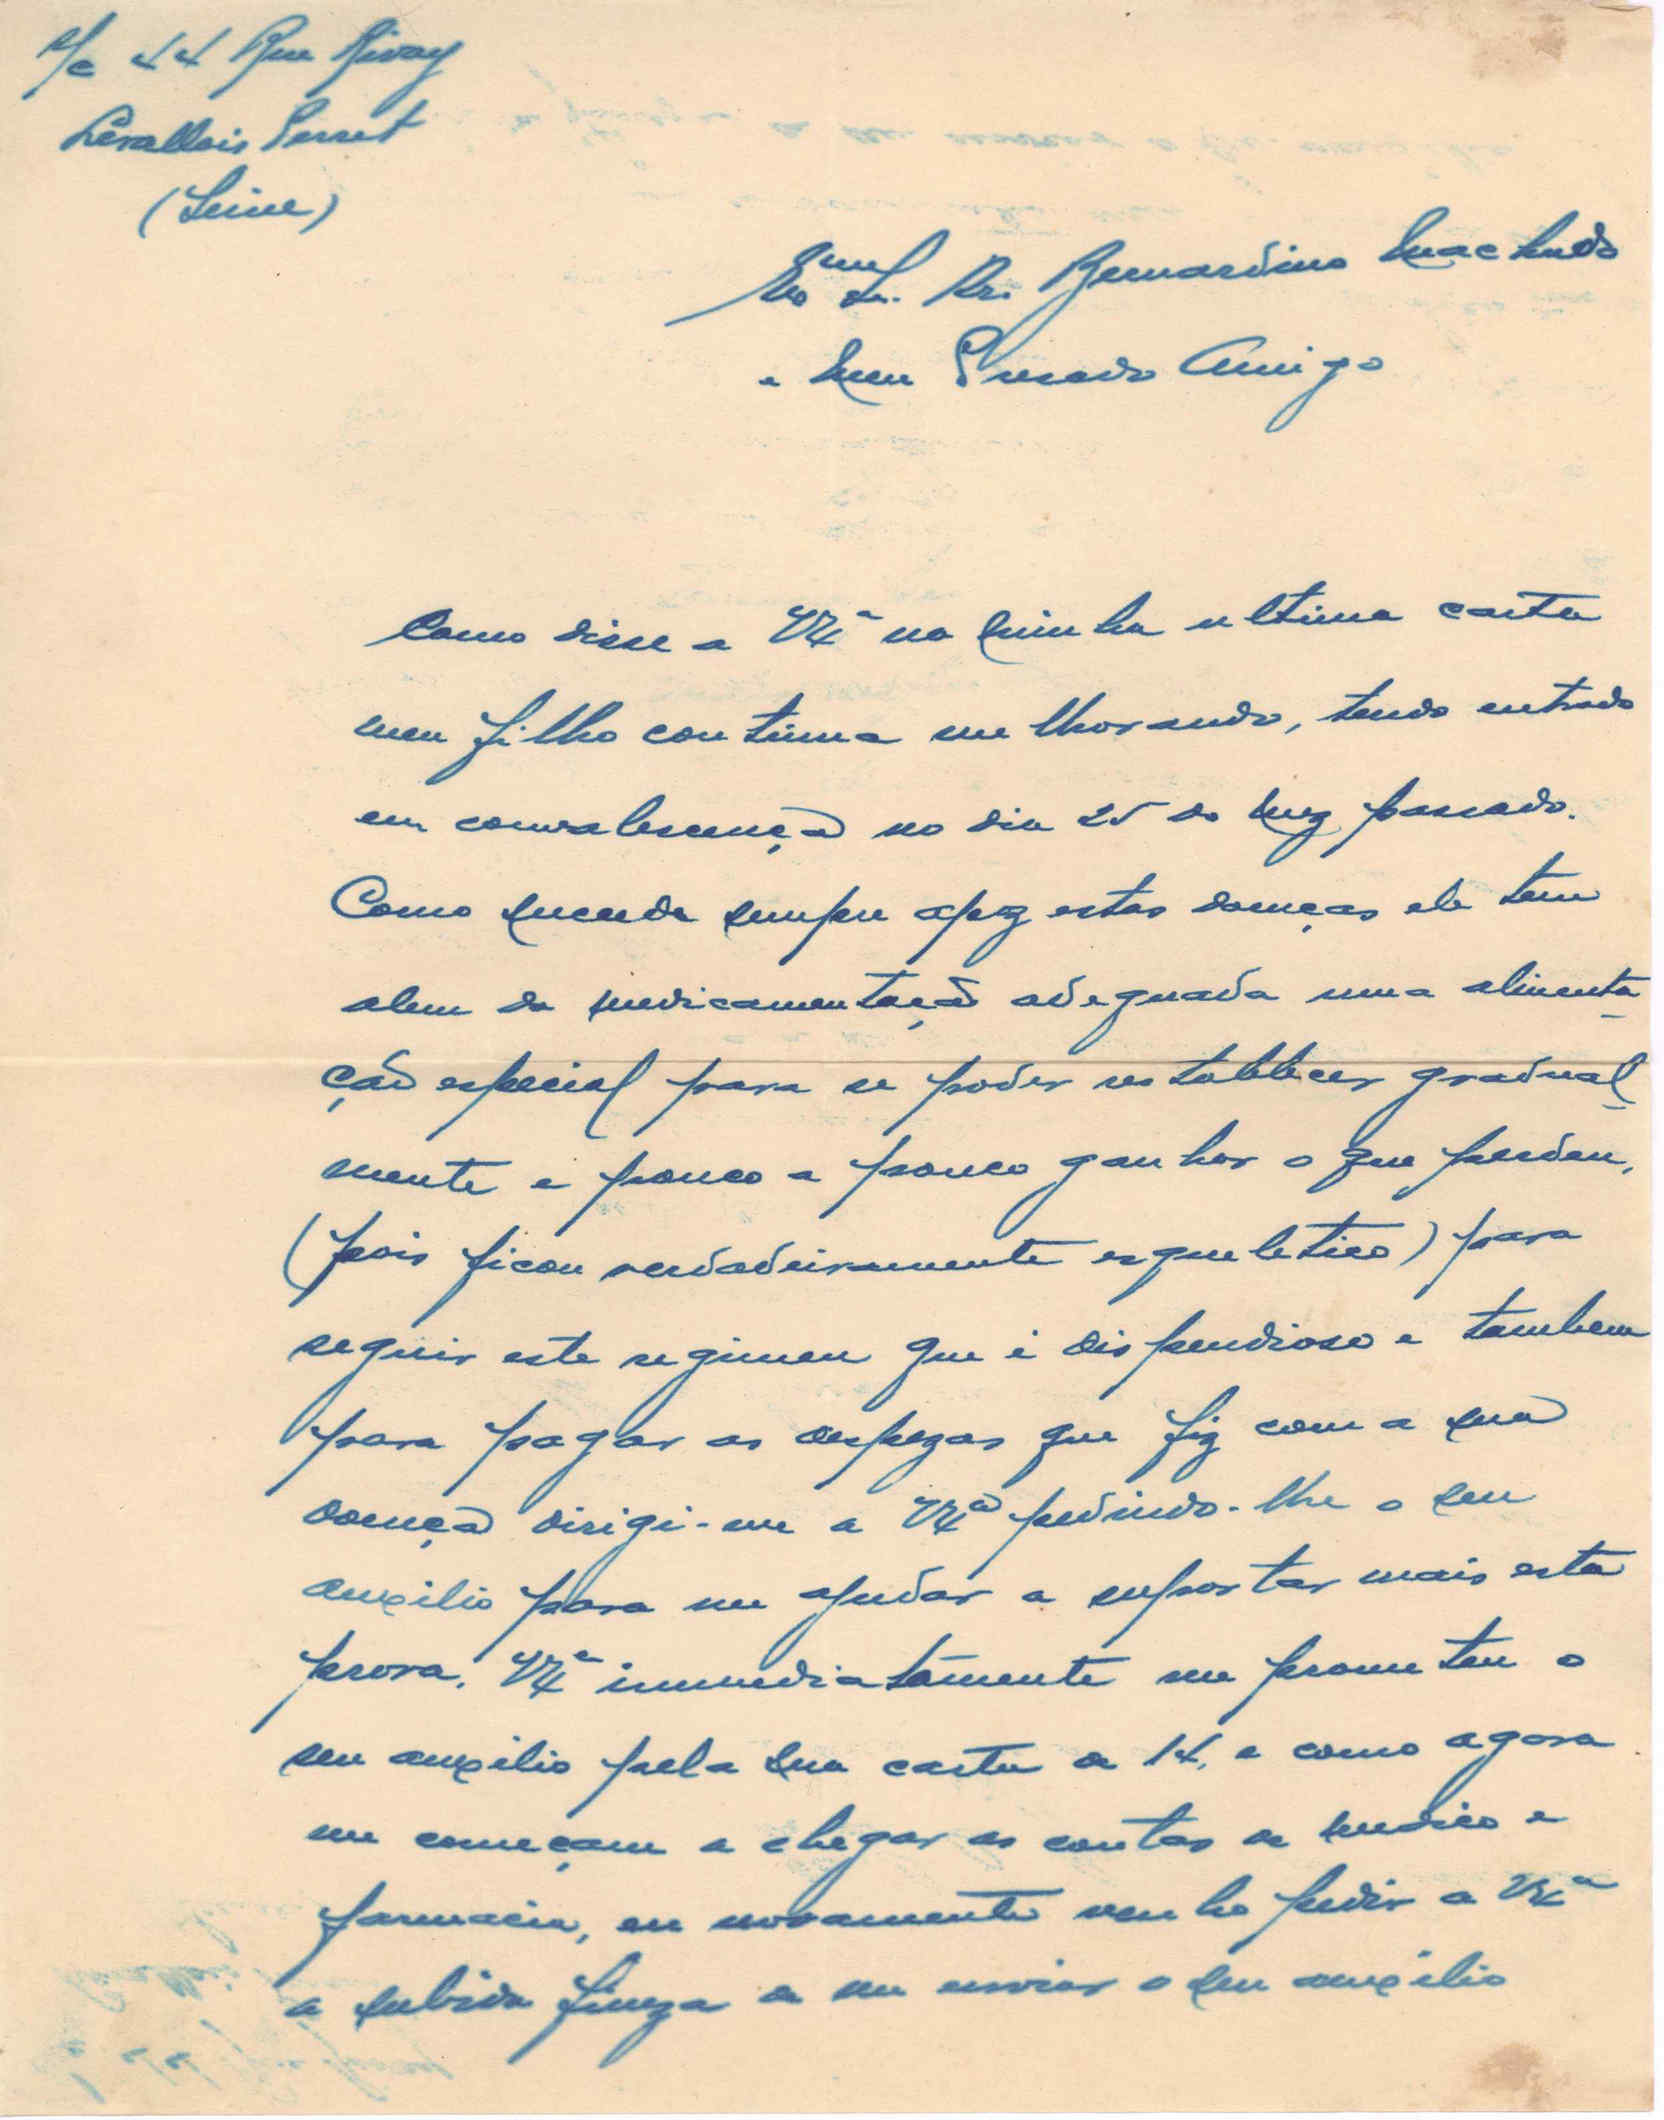 s/c 44 Rue Rivay
Levallois Perret
(Seine)
Exmo Sr. Dr. Bernardino Machado
e Meu Presado Amigo
Como disse a VExª na minha ultima carta
meu filho continua melhorando, tendo entrado
em convalescença no dia 25 do mez passado.
Como sucede sempre apoz estas doenças ele tem
alem da medicamentação adequada uma alimenta-
ção especial para se poder restablecer gradual-
mente e pouco a pouco ganhar o que perdeu,
(pois ficou verdadeiramente esqueletico) para
seguir este regimen que é dispendioso e tambem
para pagar as despezas que fiz com a sua
doença dirigi-me a VExª pedindo-lhe o seu
auxilio para me ajudar a suportar mais esta
prova. VExª immediatamente me prometeu o
seu auxilio pela sua carta de 14, e como agora
me começam a chegar as contas de medico e
farmacia, eu novamente venho pedir a VExª
a subida fineza de me enviar o seu auxilio